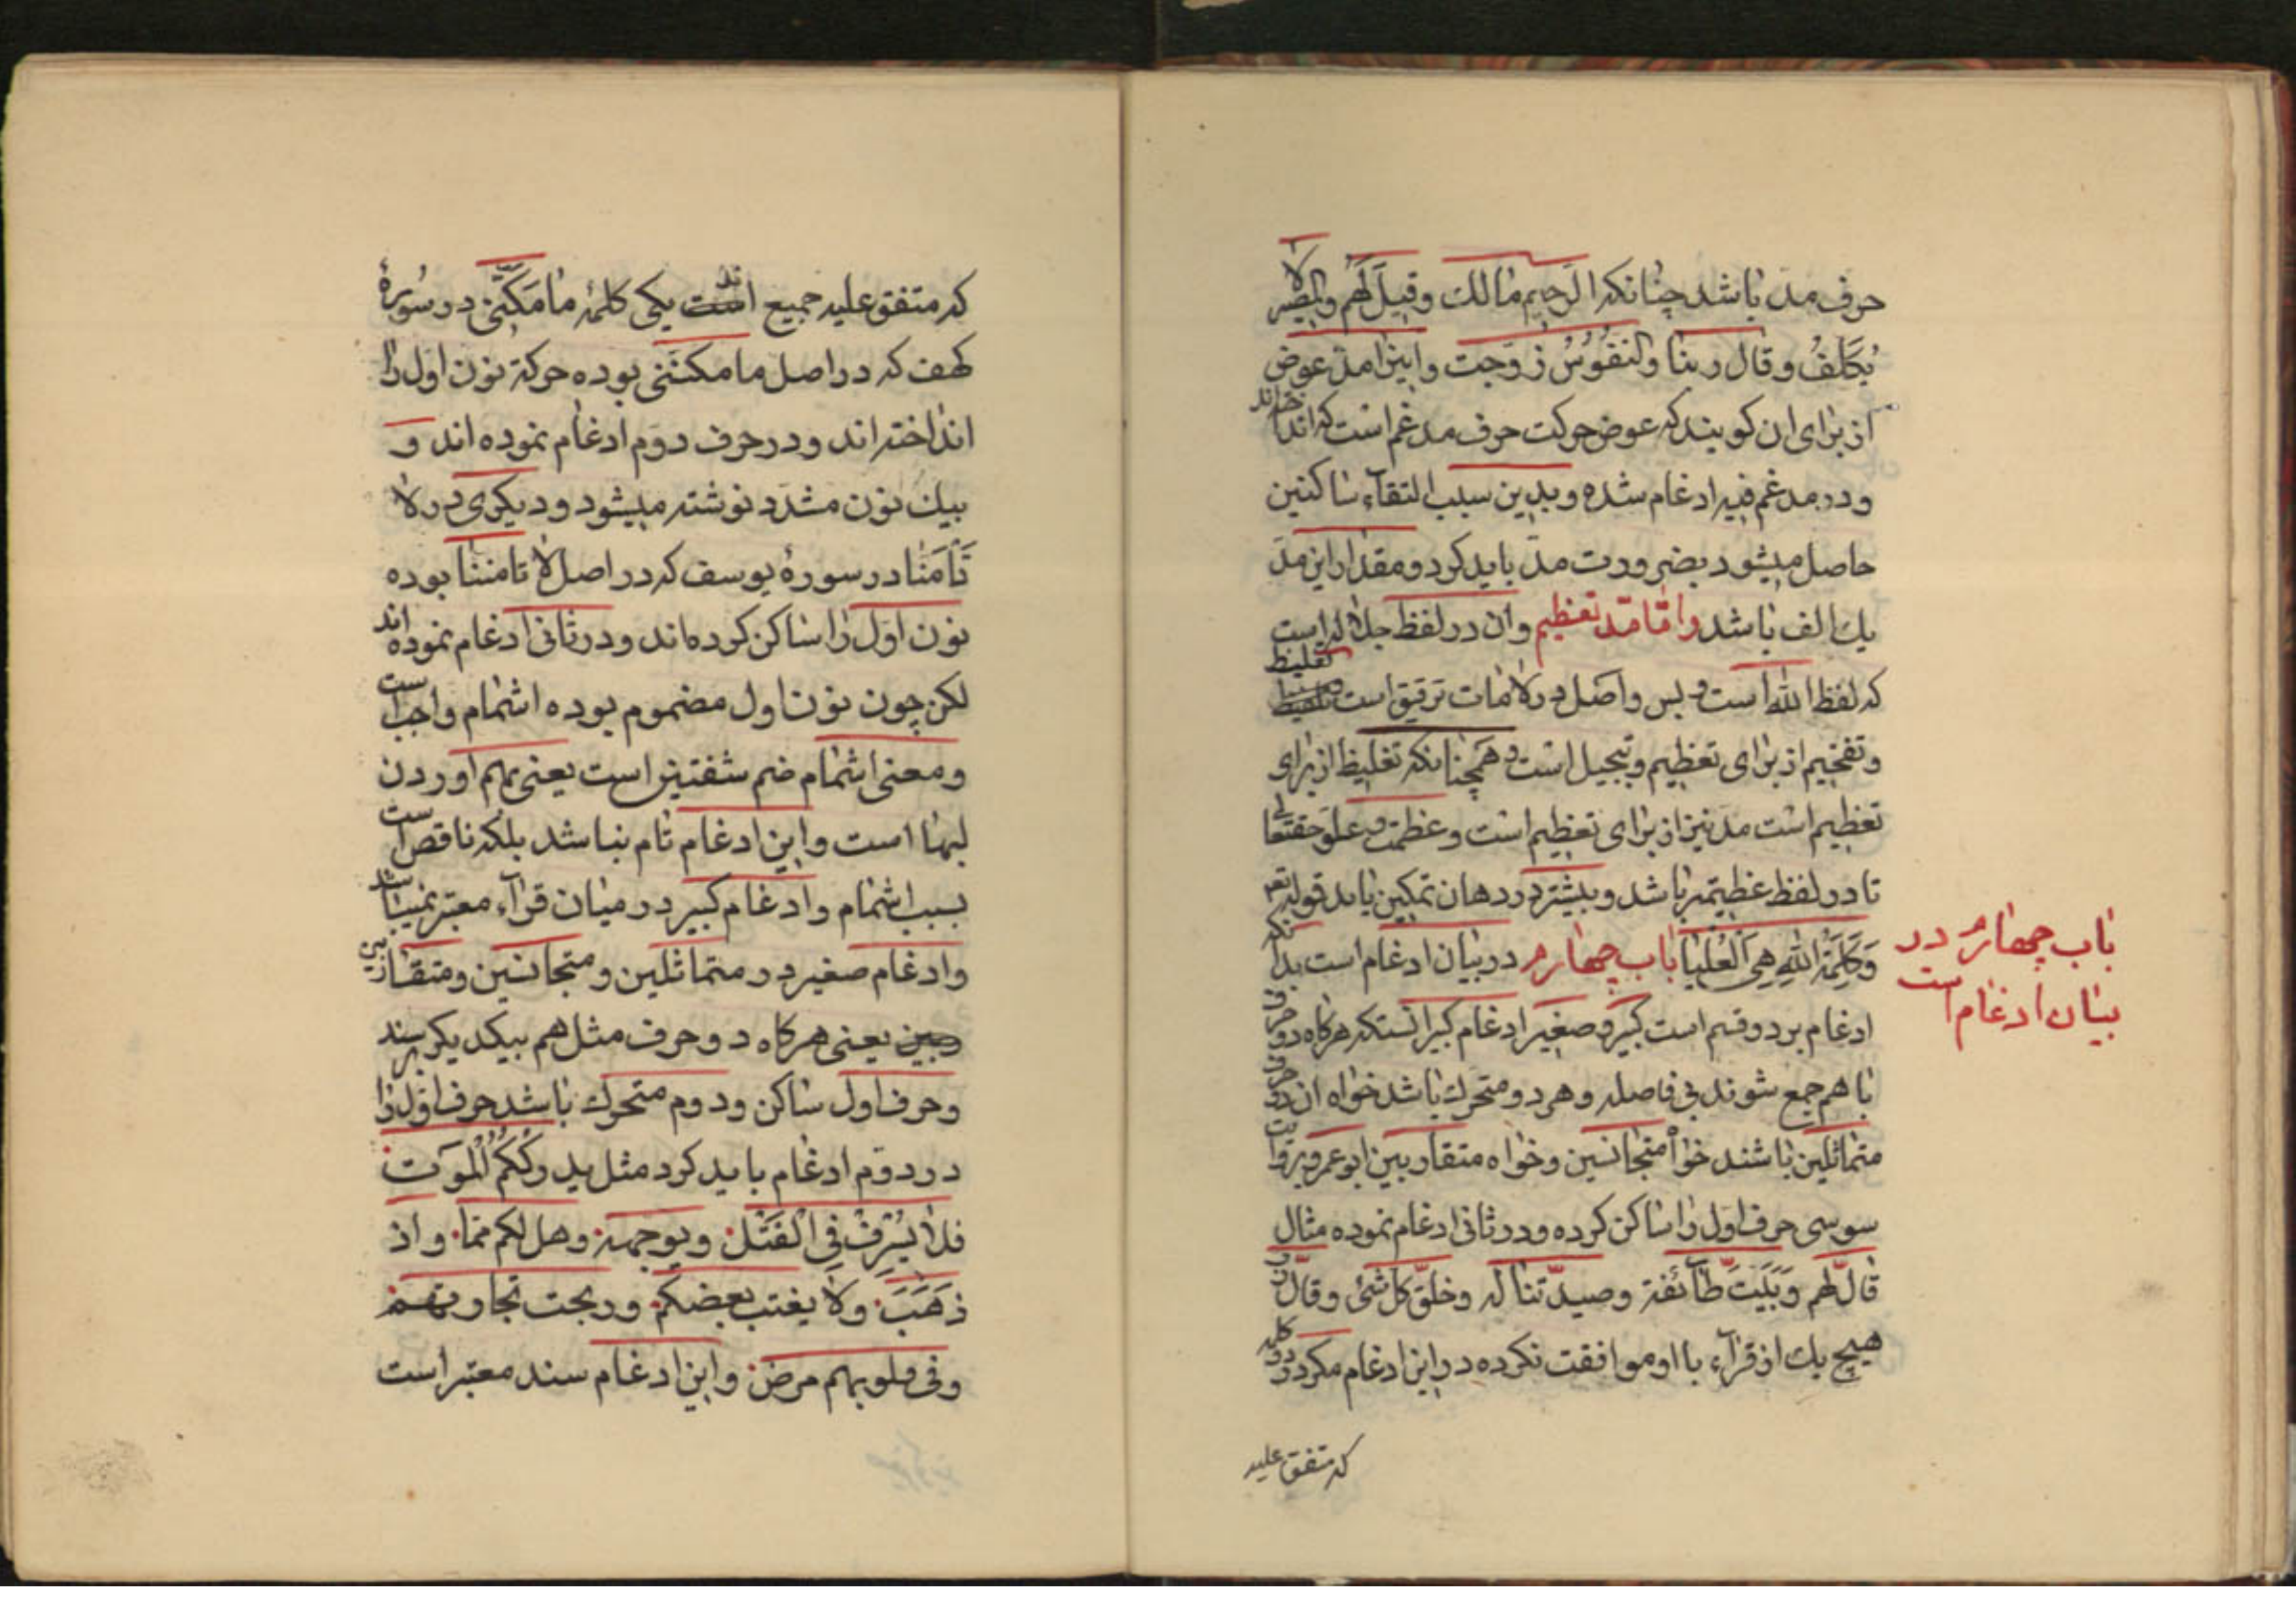 حرف مدّ باشد چنانکه الرحیم مالك وقیل لَهُم والمصیر لا
یُکَلِّفُ وقال ربنا والنفُوسُ زوّجت واینرا مدّ عوض
از برای ان کویند که عوض حرکت حرف مدغم است که انداخته‌اند
ودر مدغم فیه ادغام شده وبدین سبب التقاء ساکنین
حاصل میشود بضرورت مدّ باید کرد ومقدار این مدّ
یك الف باشد وامّا مدّ تعظیم وان در لفظ جلاله است
که لفظ الله است وبس واصل در لامات ترقیق است وتغلیظ
وتفخیم از برای تعظیم وتبجیل است وهمچنانکه تغلیظ از برای
تعظیم است مدّ نیز از برای تعظیم است وعظمت وعلوّ حقتعالی
تا در لفظ عظیمتر باشد وبیشتر در دهان تمکین یابد قوله تعـ
وَکَلِمَةُ اللهِ هِیَ الْعُلْیَا باب چهارم در بیان ادغام است بدانکه
ادغام بر دو قسم است کبیر وصغیر ادغام کبیر انستکه هرکاه دو حرف
با هم جمع شوند بی فاصله وهر دو متحرّك باشد خواه ان دو حرف
متماثلین باشند خواه متجانسین وخواه متقاربین ابو عمرو بروایت
سوسی حرف اول را ساکن کرده ودر ثانی ادغام نموده مثال
قال لهم وَبَیَّتَ طآئفة وصید تناله وخلق کل شئ و
هیچ یك از قرّآء با او موافقت نکرده در این ادغام مکر در دو کلمه
که متفق علیه
باب چهارم در
بیان ادغام است
که متفق علیه جمیع اند یکی کلمۀ ما مَکَّنّی در سُورۀ
کهف که در اصل ما مکننی بوده حرکة نون اول را
انداخته اند ودر حرف دوّم ادغام نموده اند و
بیك نون مشدّد نوشته میشود ودیکری در لا
تَأمَنّا در سورۀ یوسف که در اصل لا تامننا بوده
نون اول را ساکن کرده‌اند ودر ثانی ادغام نموده اند
لکن چون نون اول مضموم بوده اشمام واجب است
ومعنی اشمام ضم شفتین است یعنی بهم اوردن
لبها است واین ادغام تام نباشد بلکه ناقص است
بسبب اشمام وادغام کبیر در میان قرّآء معتبر نمیباشد
وادغام صغیر در متماثلین ومتجانسین ومتقاربین
یعنی هرکاه دو حرف مثل هم بیکدیکر برسند
وحرف اول ساکن ودوم متحرك باشد حرف اول را
در دوّم ادغام باید کرد مثل یدرککُّمُ الْمَوت
فلا یُسْرِفْ فِی الْقَتْل ویوجهه وهل لکم مما واذ
ذهَبَ ولا یغتب بعضکم وربحت تجارتهم
وفی قلوبهم مرض واین ادغام سند معتبر است